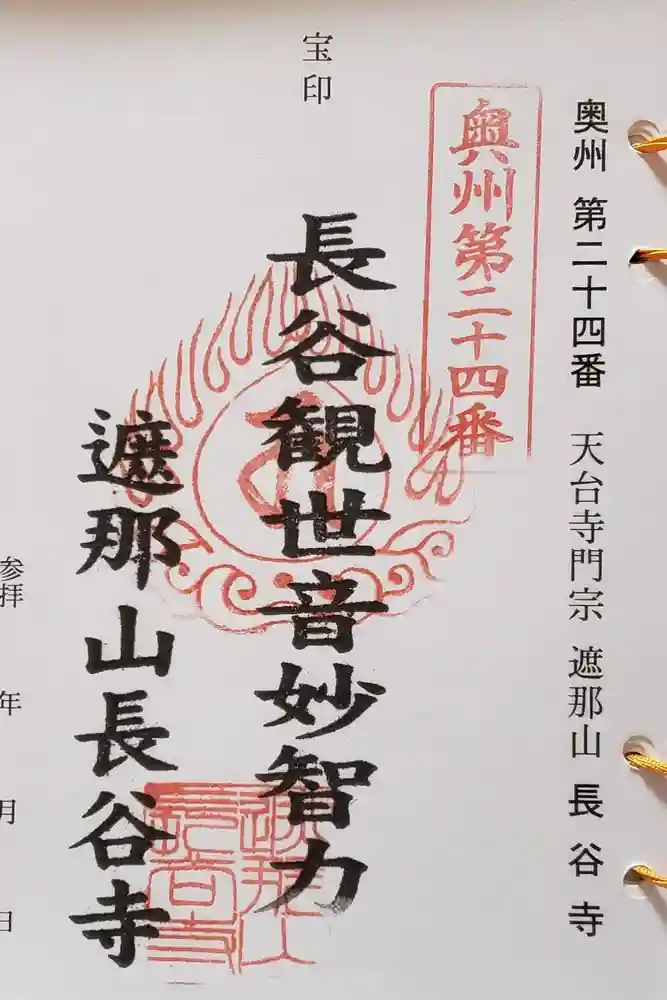 奥州 第二十四番 天台寺門宗 遮那山 長谷寺
奥州第二十四番
宝印
長谷観世音妙智力
遮那山長谷寺
参拝 年 月 日
遮那山
長谷寺